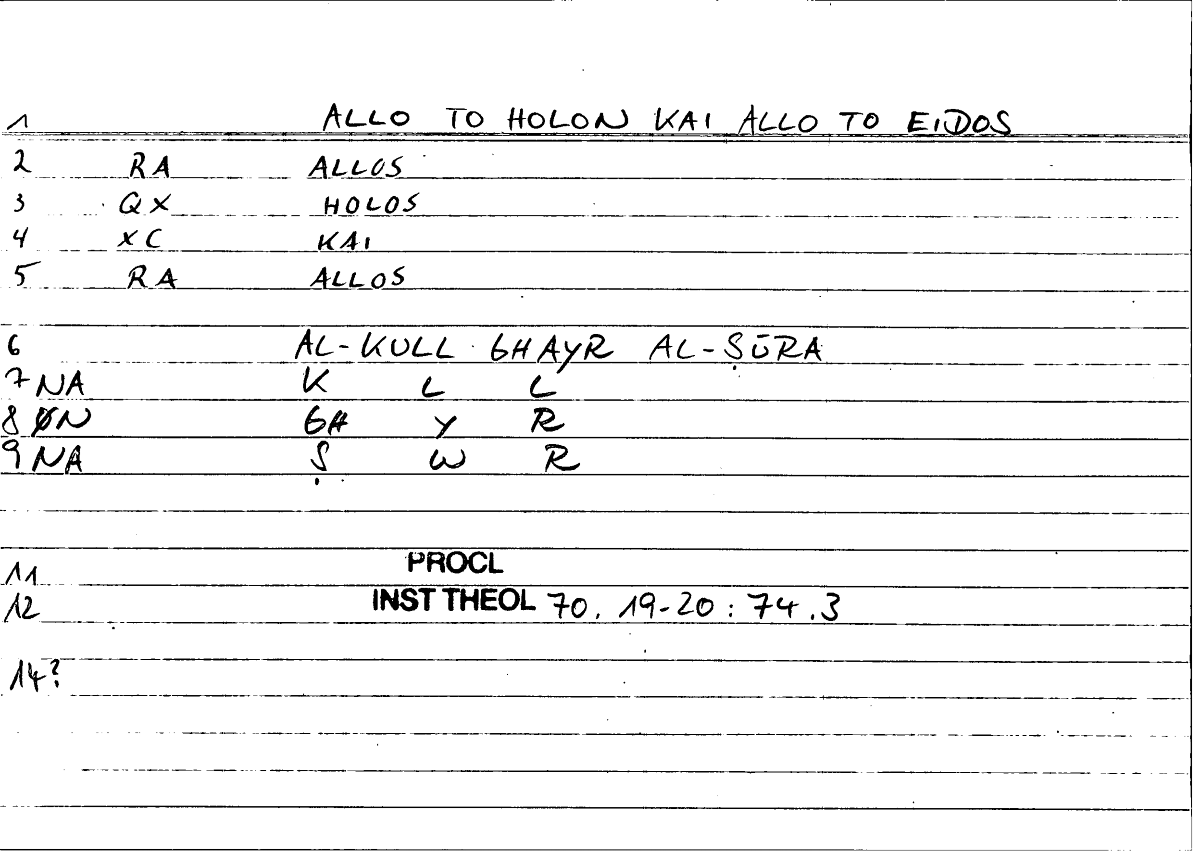 1 ALLO TO HOLON KAI ALLO TO EIDOS
2 RA ALLOS
3 QX HOLOS
4 XC KAI
5 RA ALLOS
6 AL-KULL GHAYR AL-ṢŪRA
7 NA K L L
8 ØN GH Y R
9 NA Ṣ W R
11 PROCL
12 INST THEOL 70. 19-20 : 74.3
14?